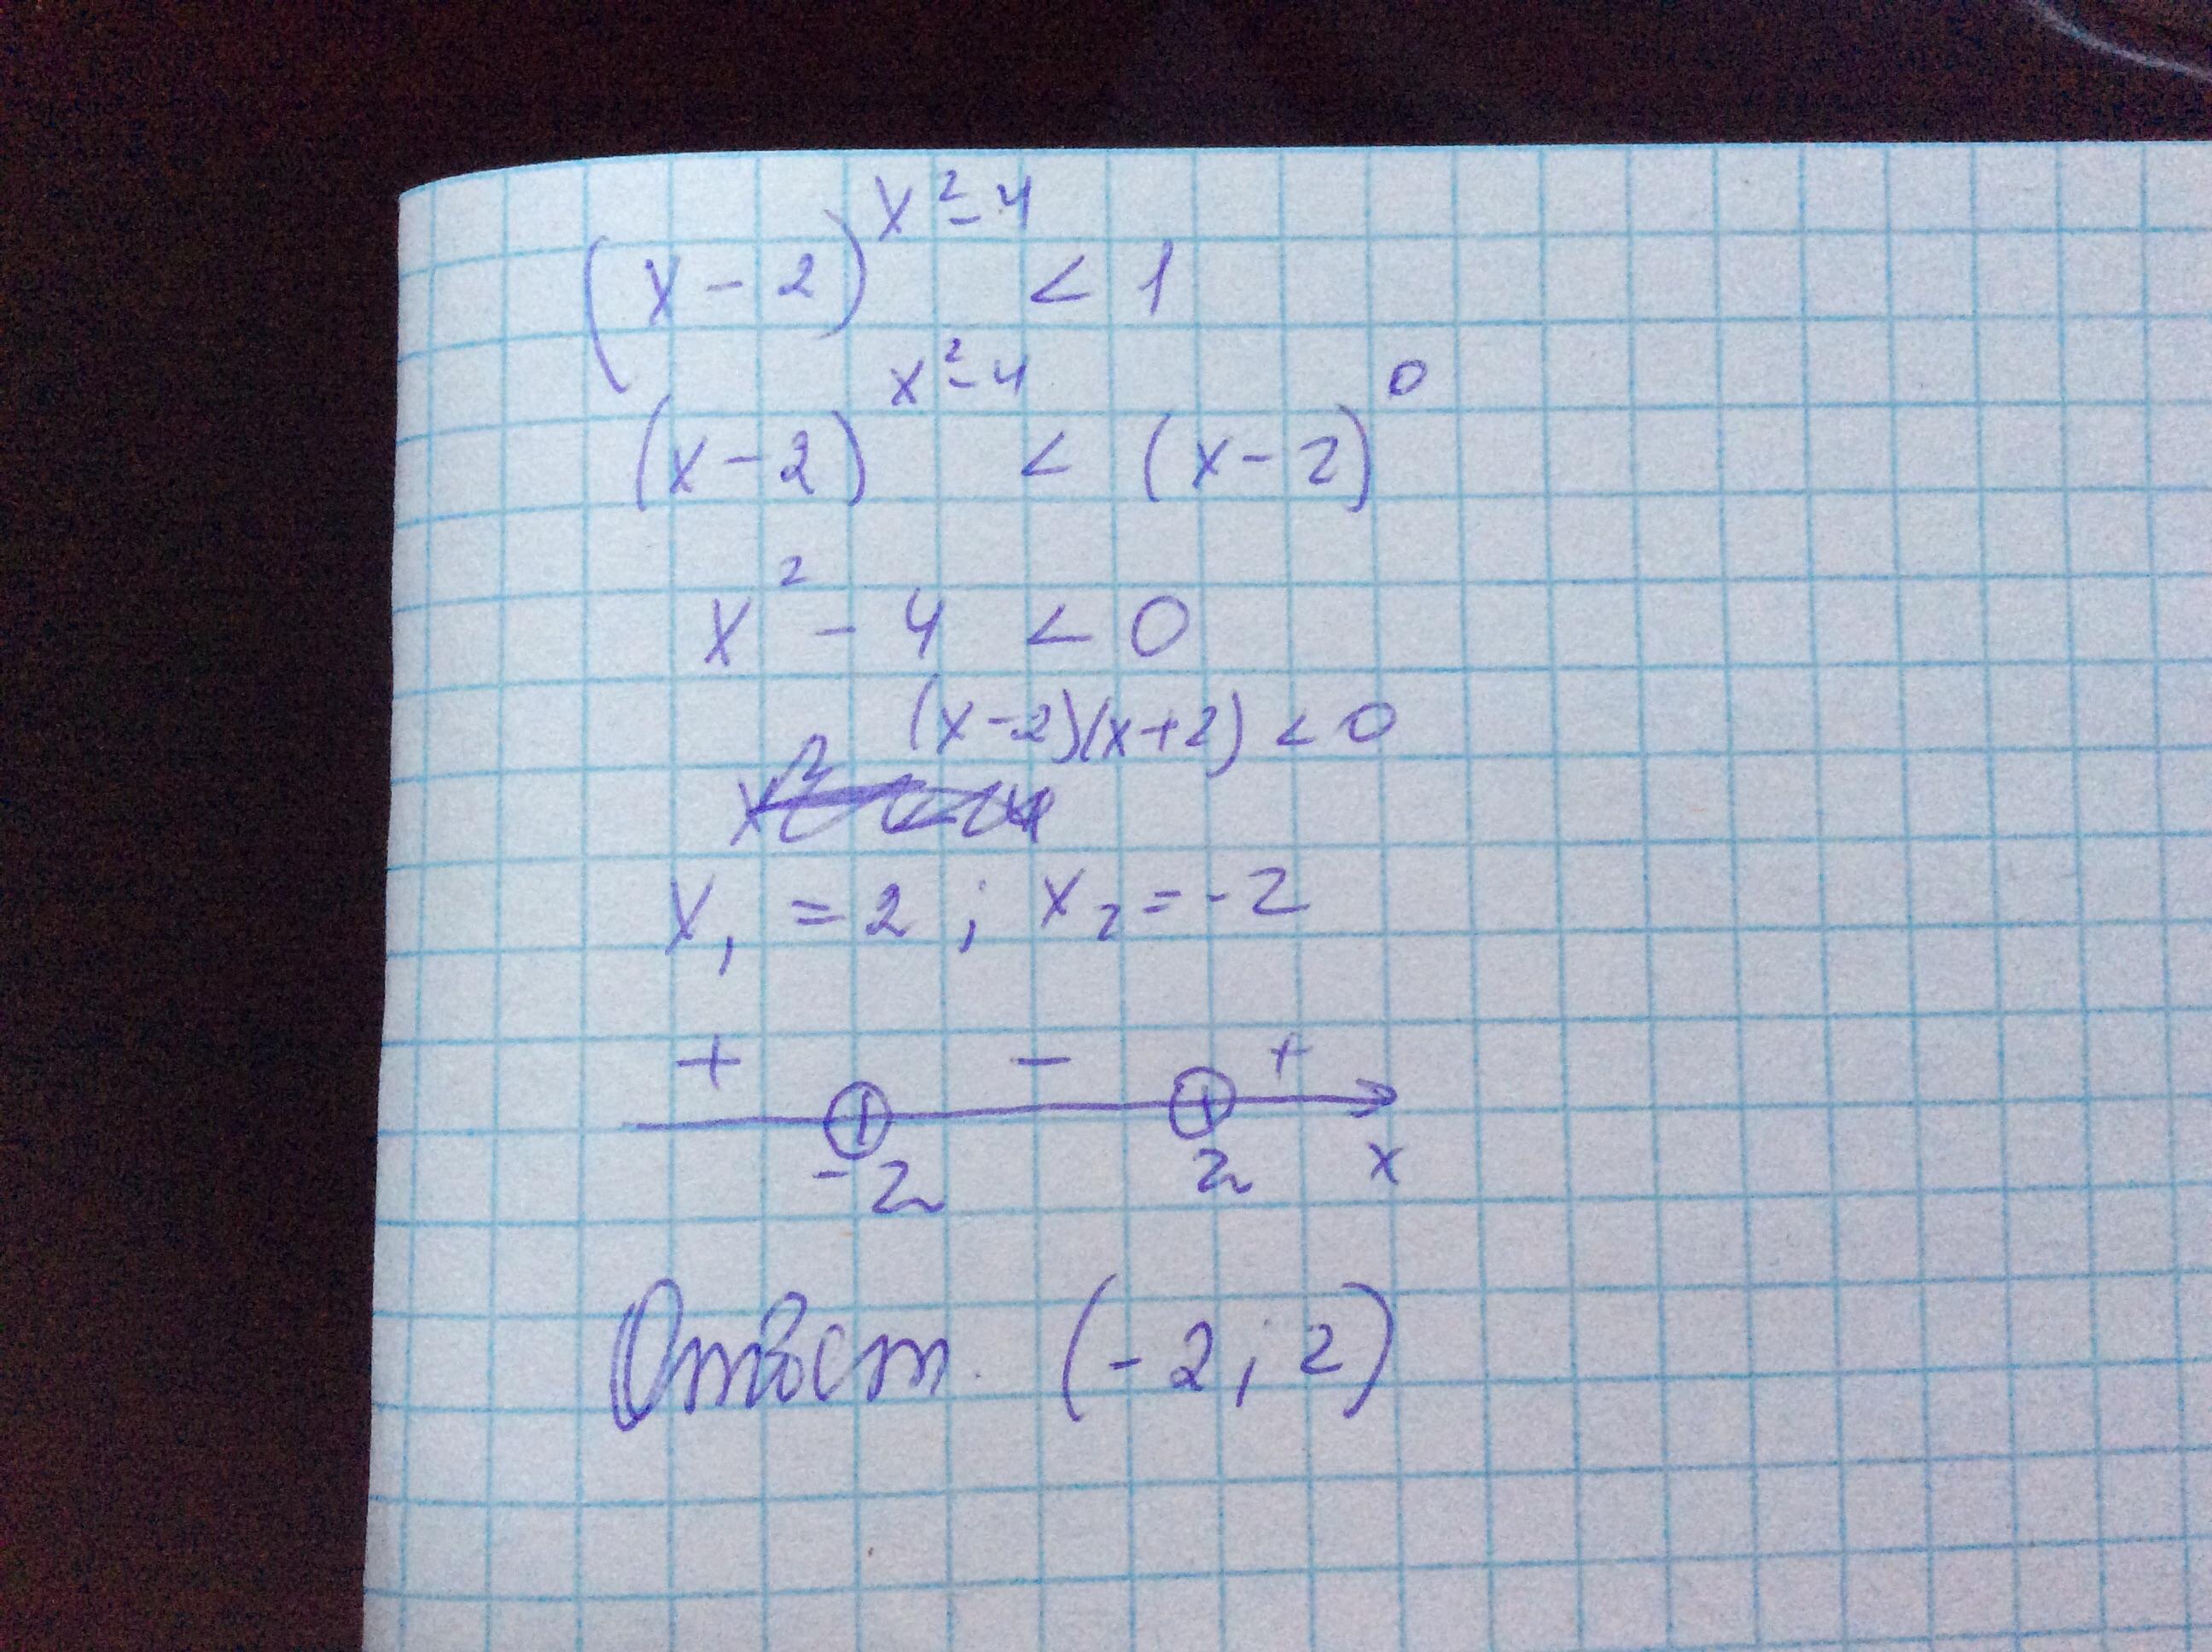 (x-2)^{x²-4} < 1
(x-2)^{x²-4} < (x-2)^0
x² - 4 < 0
(x-2)(x+2) < 0
x₁ = 2 ; x₂ = -2
+ - +
-2 2 x
Ответ. (-2; 2)